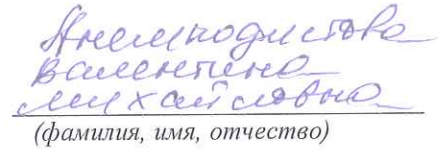 Анемподистова
Валентина
Михайловна
(фамилия, имя, отчество)